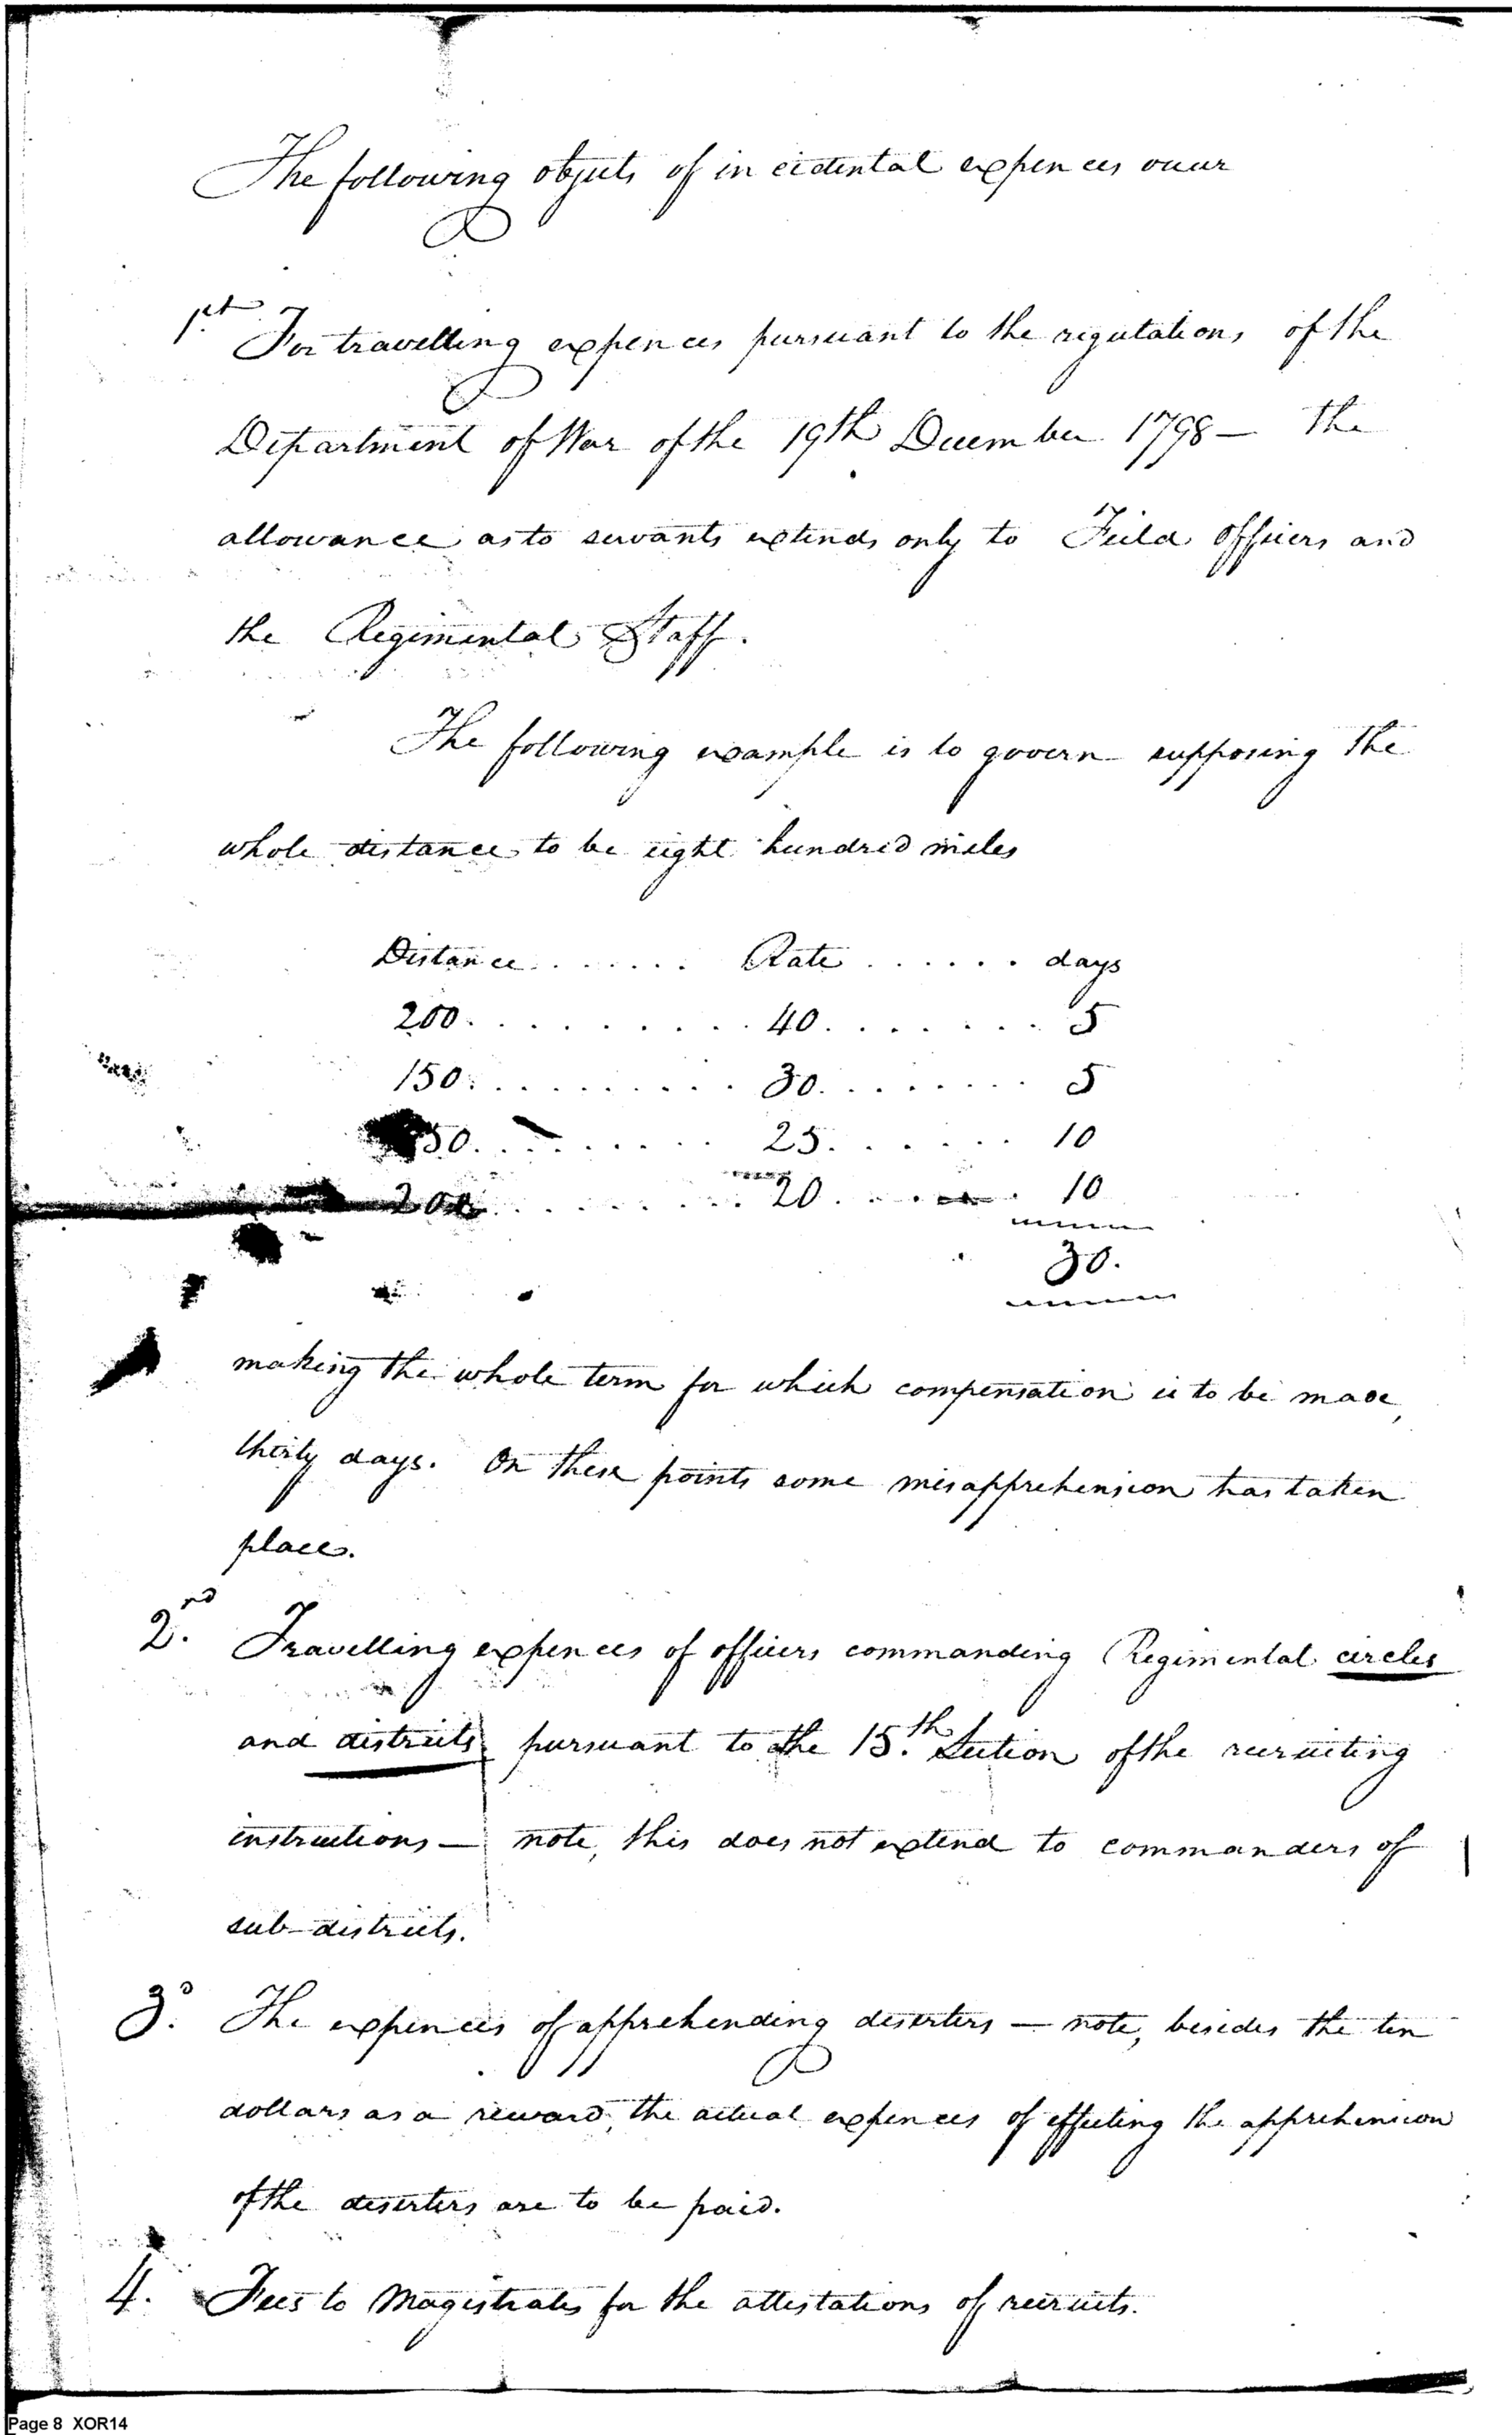 The following objects of incidental expences occur
1st For travelling expences pursuant to the regulations of the
Department of War of the 19th December 1798 — the
allowance as to servants extends only to Field officers and
the Regimental Staff.
The following example is to govern supposing the
whole distance to be eight hundred miles
Distance . . . . . . . Rate . . . . . . days
200 . . . . . . . . . . 40 . . . . . . . . 5
150 . . . . . . . . . . 30 . . . . . . . . 5
50 . . . . . . . . 25 . . . . . . 10
200 . . . . . . . . . 20 . . . . . . 10
30.
making the whole term for which compensation is to be made,
thirty days. On these points some misapprehension has taken
place.
2nd. Travelling expences of officers commanding Regimental circles
and districts pursuant to the 15.th Section of the recruiting
instructions — note, this does not extend to commanders of
sub-districts.
3d. The expences of apprehending deserters — note, besides the ten
dollars as a reward, the actual expences of effecting the apprehension
of the deserters are to be paid.
4. Fees to Magistrates for the attestations of recruits.
Page 8 XOR14